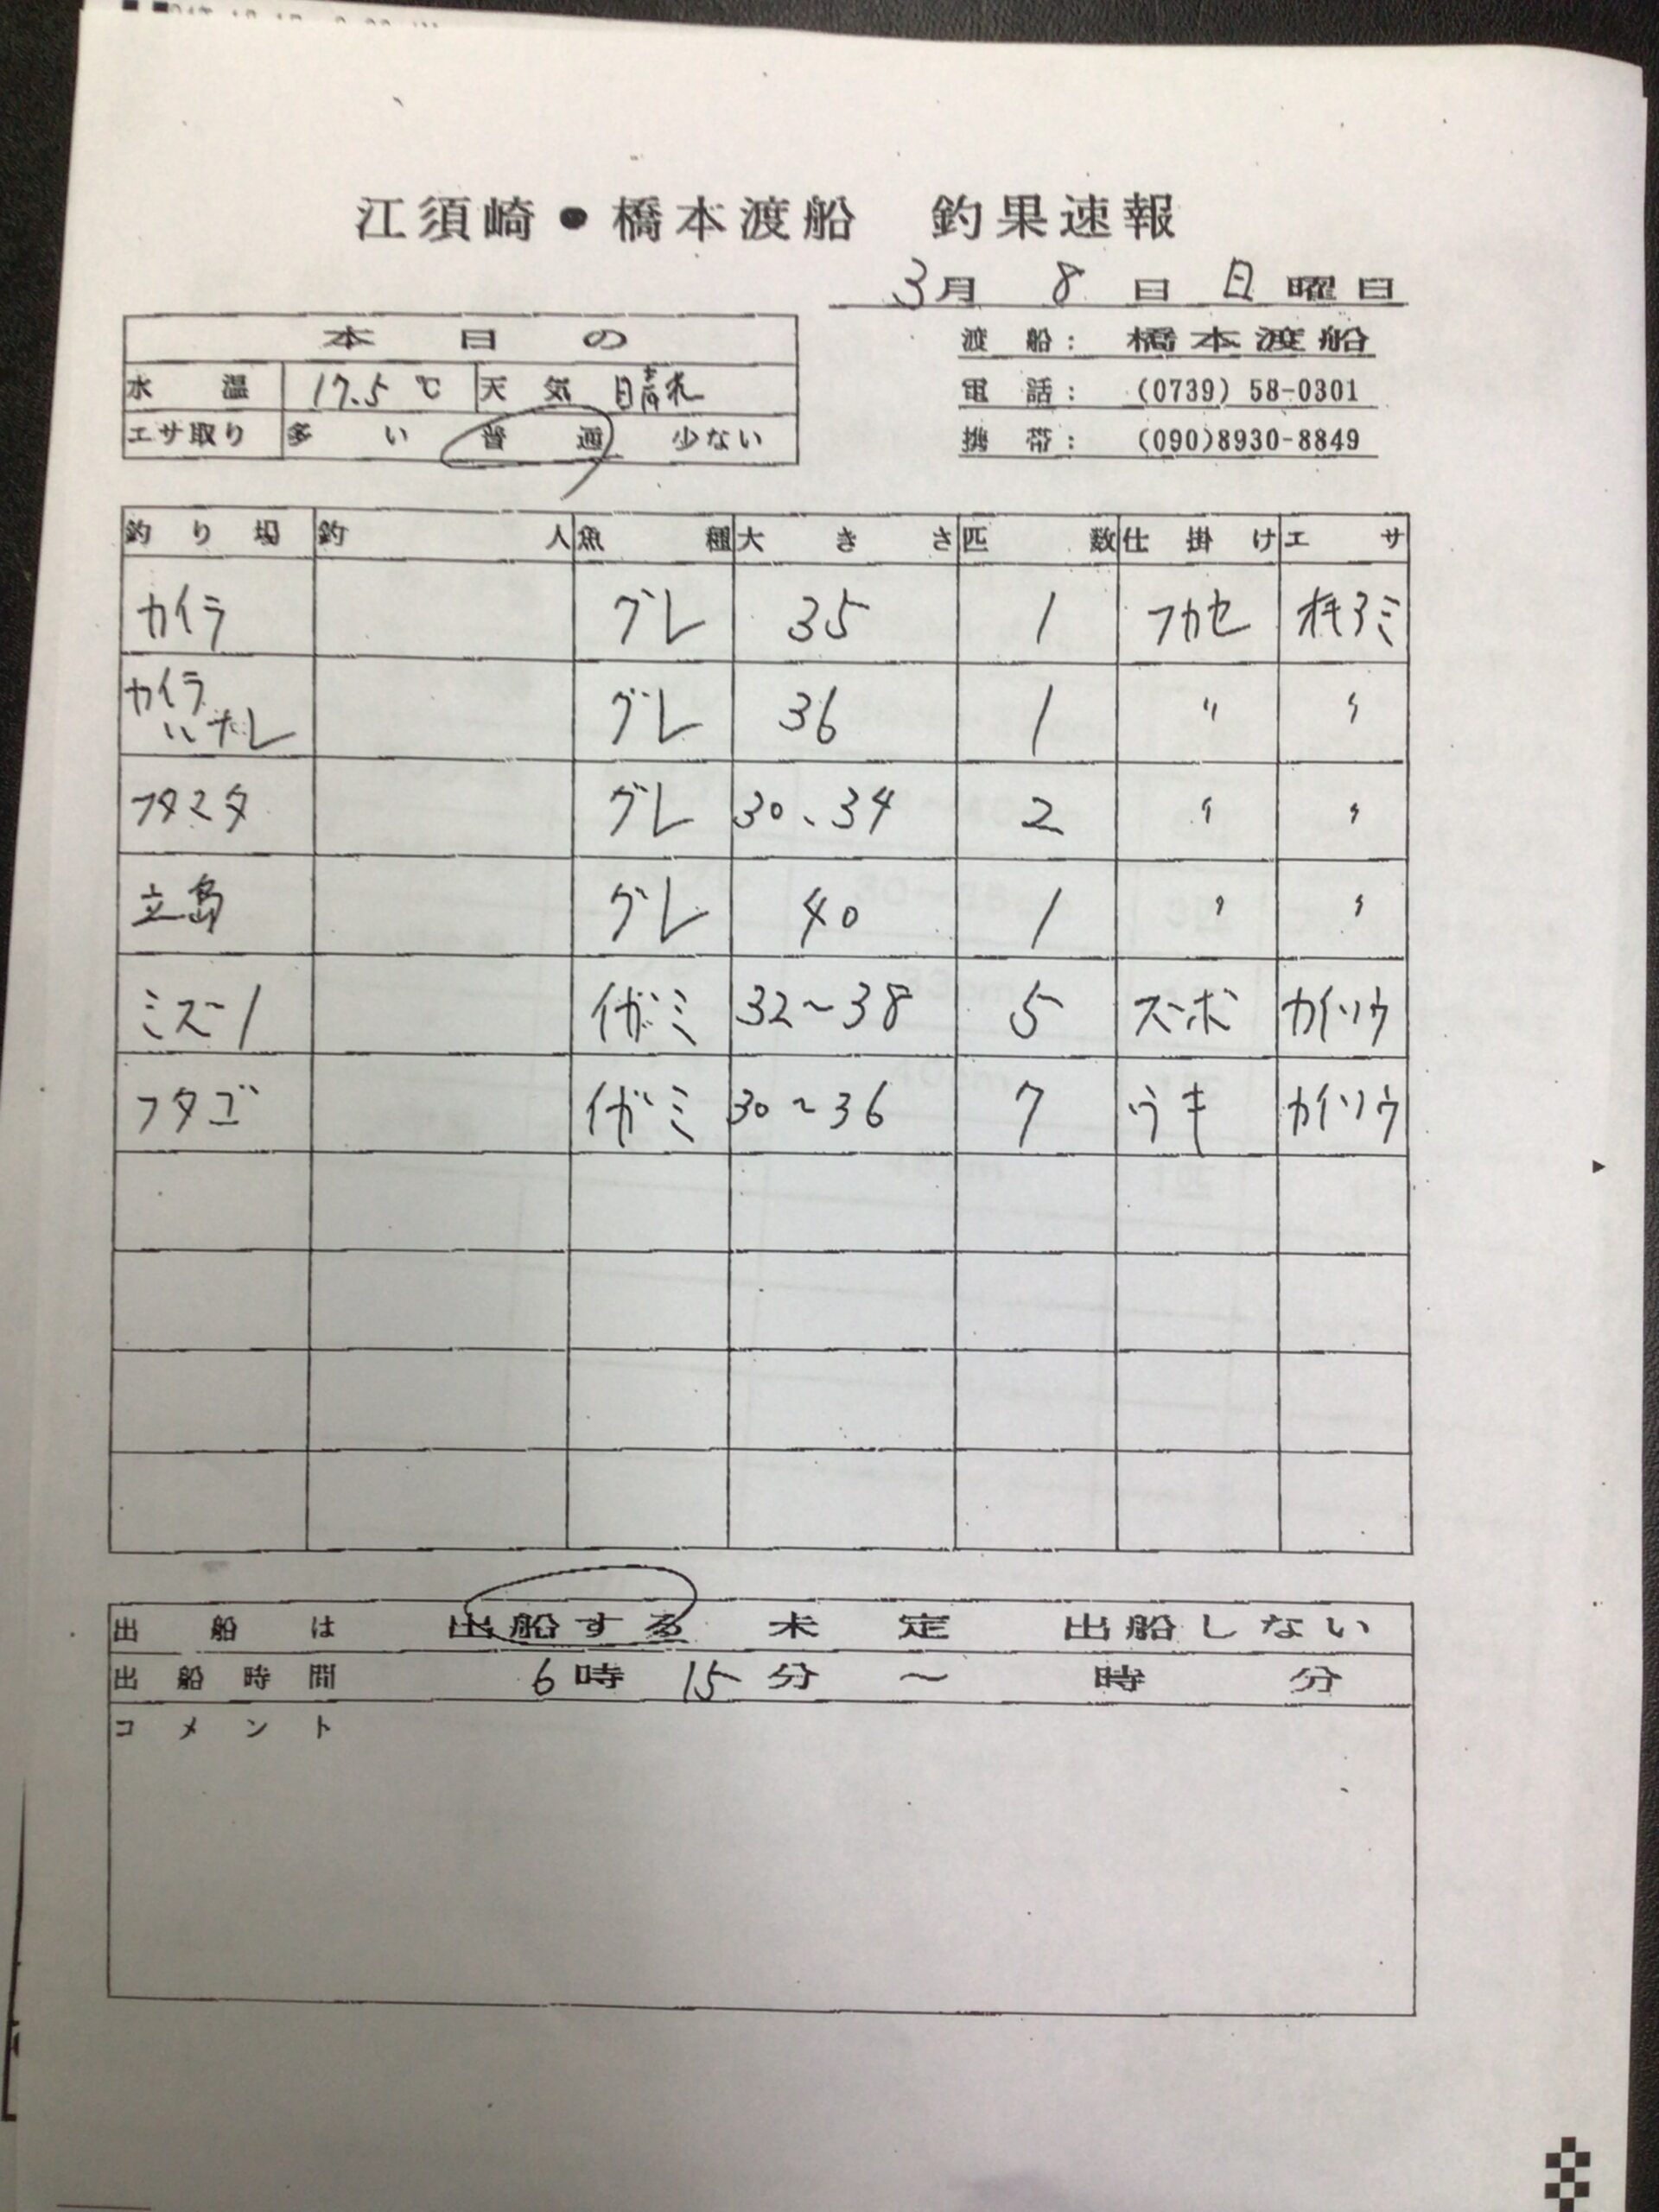 江須崎●橋本渡船 釣果速報
3月 8 日 日 曜日
本日の
水温 17.5 ℃ 天気 晴れ
エサ取り 多い 普通 少ない
渡船: 橋本渡船
電話: (0739) 58-0301
携帯: (090)8930-8849
釣り場 釣人 魚種 大きさ 匹数 仕掛け エサ
カイラ グレ 35 1 フカセ オキアミ
カイラ グレ 36 1 〃 〃
フタマタ グレ 30、34 2 〃 〃
立島 グレ 40 1 〃 〃
ミズノ イガミ 32~38 5 ズボ カイソウ
フタゴ イガミ 30~36 7 ウキ カイソウ
出船は 出船する 未定 出船しない
出船時間 6時 15分 ～ 時 分
コメント